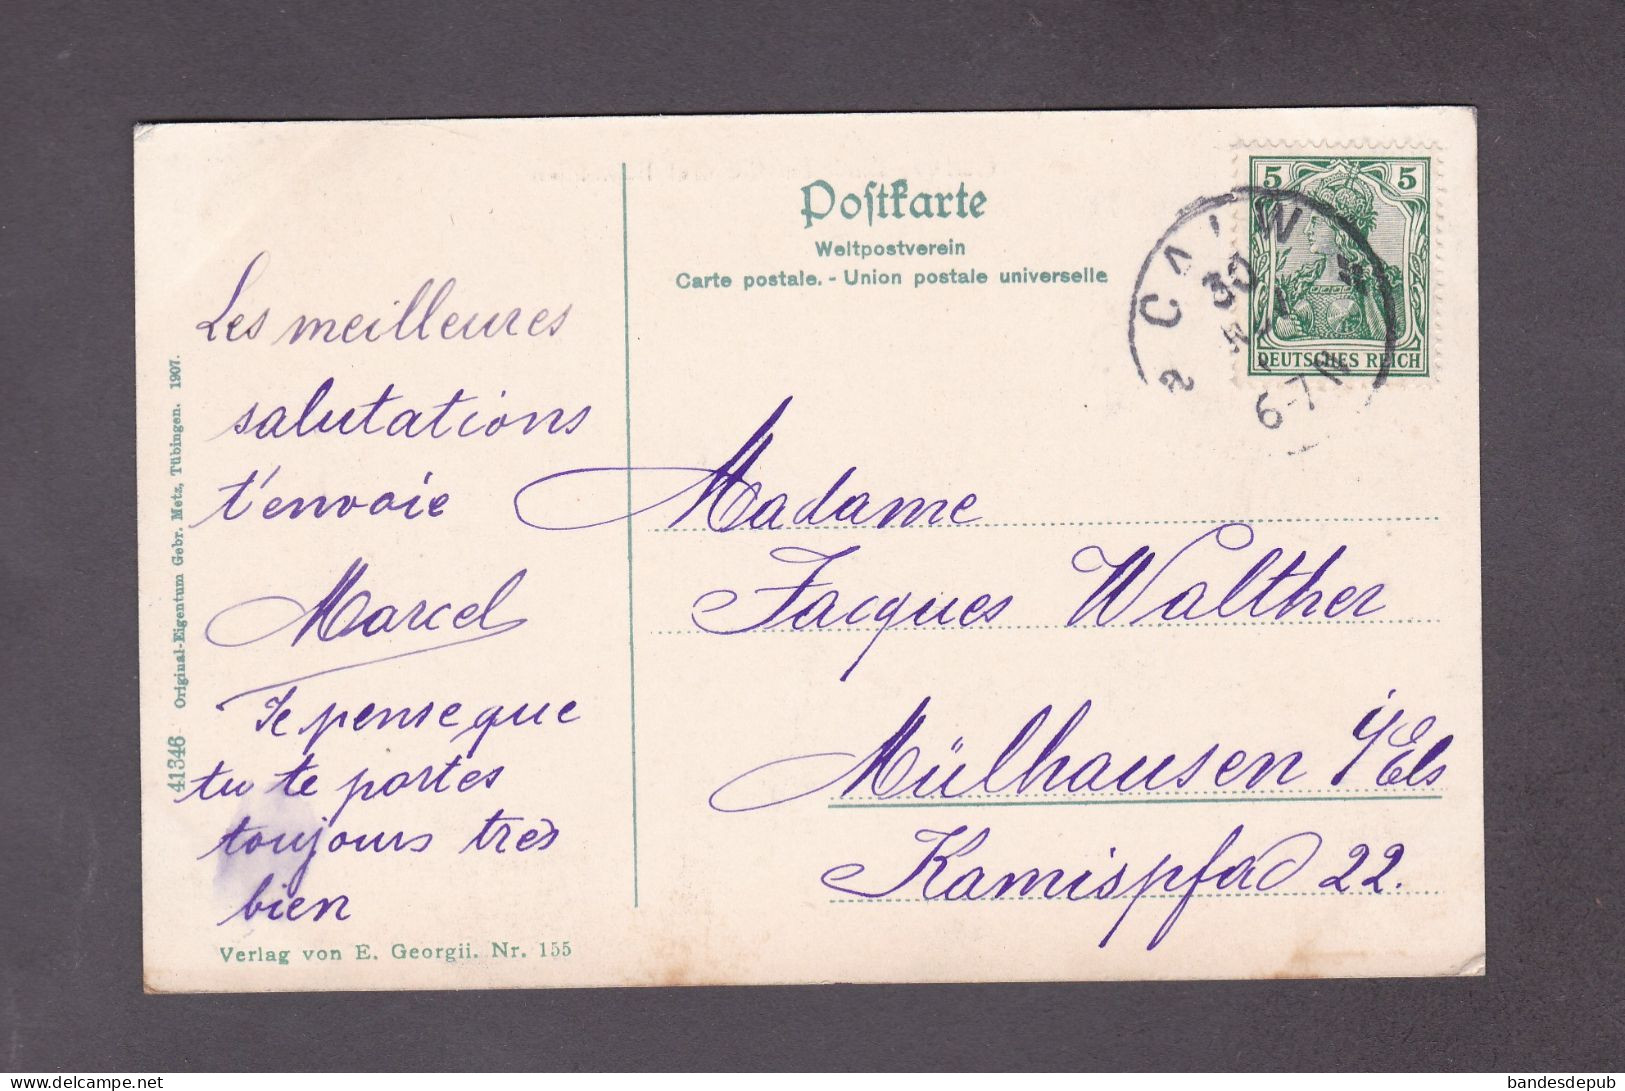 Postkarte
Weltpostverein
Carte postale. - Union postale universelle
5 5
DEUTSCHES REICH
CALW
30
6-7N
Les meilleures
salutations
t'envoie
Marcel
Je pense que
tu te portes
toujours très
bien
Madame
Jacques Walther
Mülhausen i/Els
Kamispfad 22.
41346 Original-Eigentum Gebr. Metz, Tübingen. 1907.
Verlag von E. Georgii. Nr. 155
delcampe.net
bandesdepub